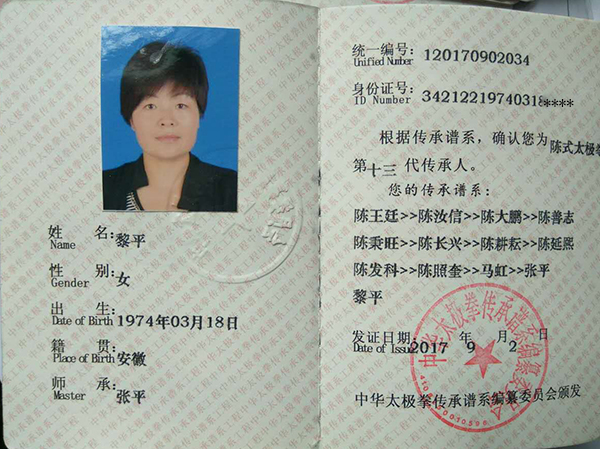 姓 名:黎平
Name
性 别:女
Gender
出 生:1974年03月18日
Date of Birth
籍 贯:安徽
Place of Birth
师 承:张平
Master
统一编号: 120170902034
Unified Number
身份证号: 34212219740318****
ID Number
根据传承谱系,确认您为陈式太极拳
第十三代传承人。
您的传承谱系:
陈王廷>>陈汝信>>陈大鹏>>陈善志
陈秉旺>>陈长兴>>陈耕耘>>陈延熙
陈发科>>陈照奎>>马虹>>张平
黎平
发证日期: 2017 年 9 月 2 日
Date of Issue
中华太极拳传承谱系编纂委员会
中华太极拳传承谱系编纂委员会颁发